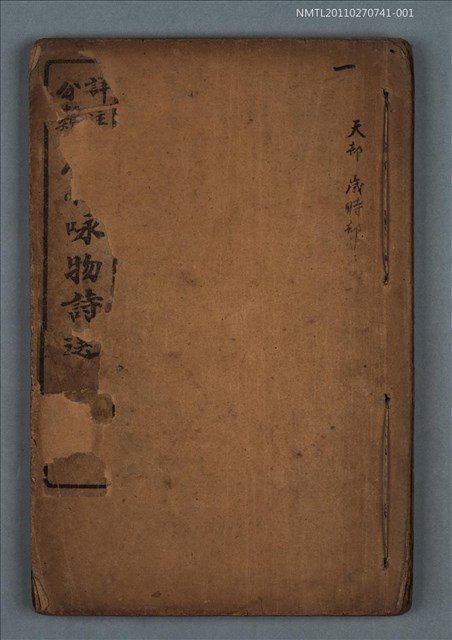 NMTL20110270741-001
一
天部 歲時部
詳註
分類
咏物詩選